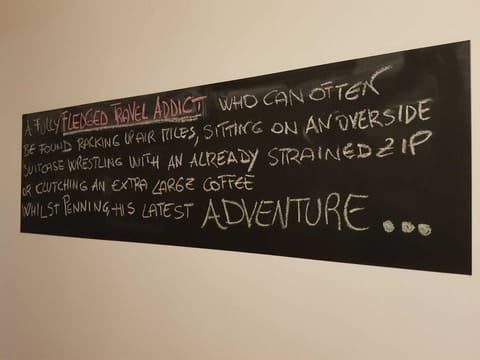 A FULLY FLEDGED TRAVEL ADDICT WHO CAN OFTEN
BE FOUND RACKING UP AIR MILES, SITTING ON AN OVERSIDE
SUITCASE WRESTLING WITH AN ALREADY STRAINED ZIP
OR CLUTCHING AN EXTRA LARGE COFFEE
WHILST PENNING HIS LATEST ADVENTURE ...